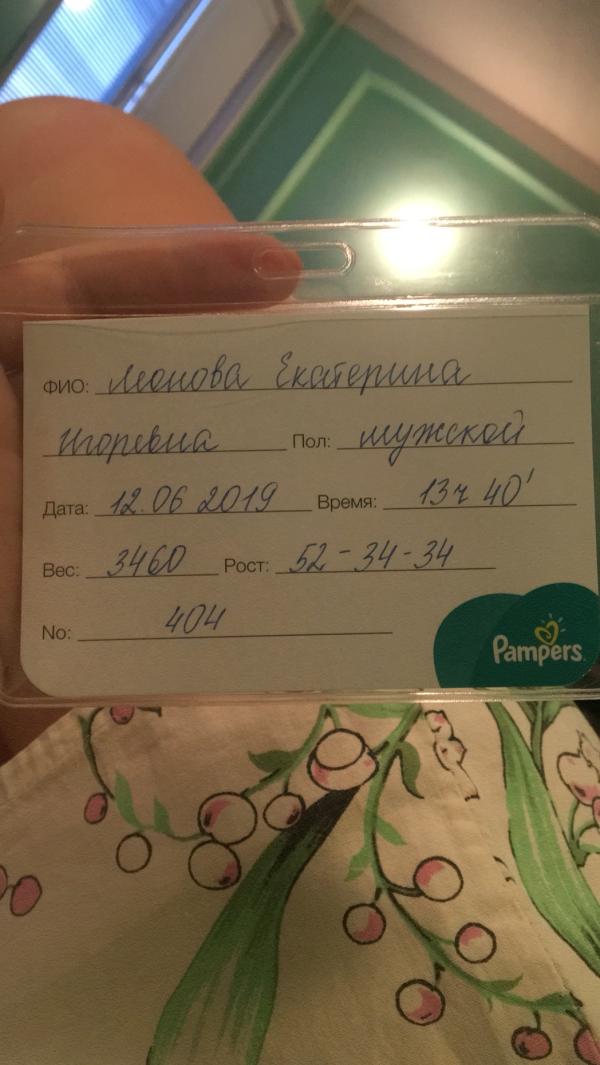 ФИО: Леонова Екатерина
Игоревна Пол: мужской
Дата: 12.06 2019 Время: 13ч 40'
Вес: 3460 Рост: 52-34-34
No: 404
Pampers